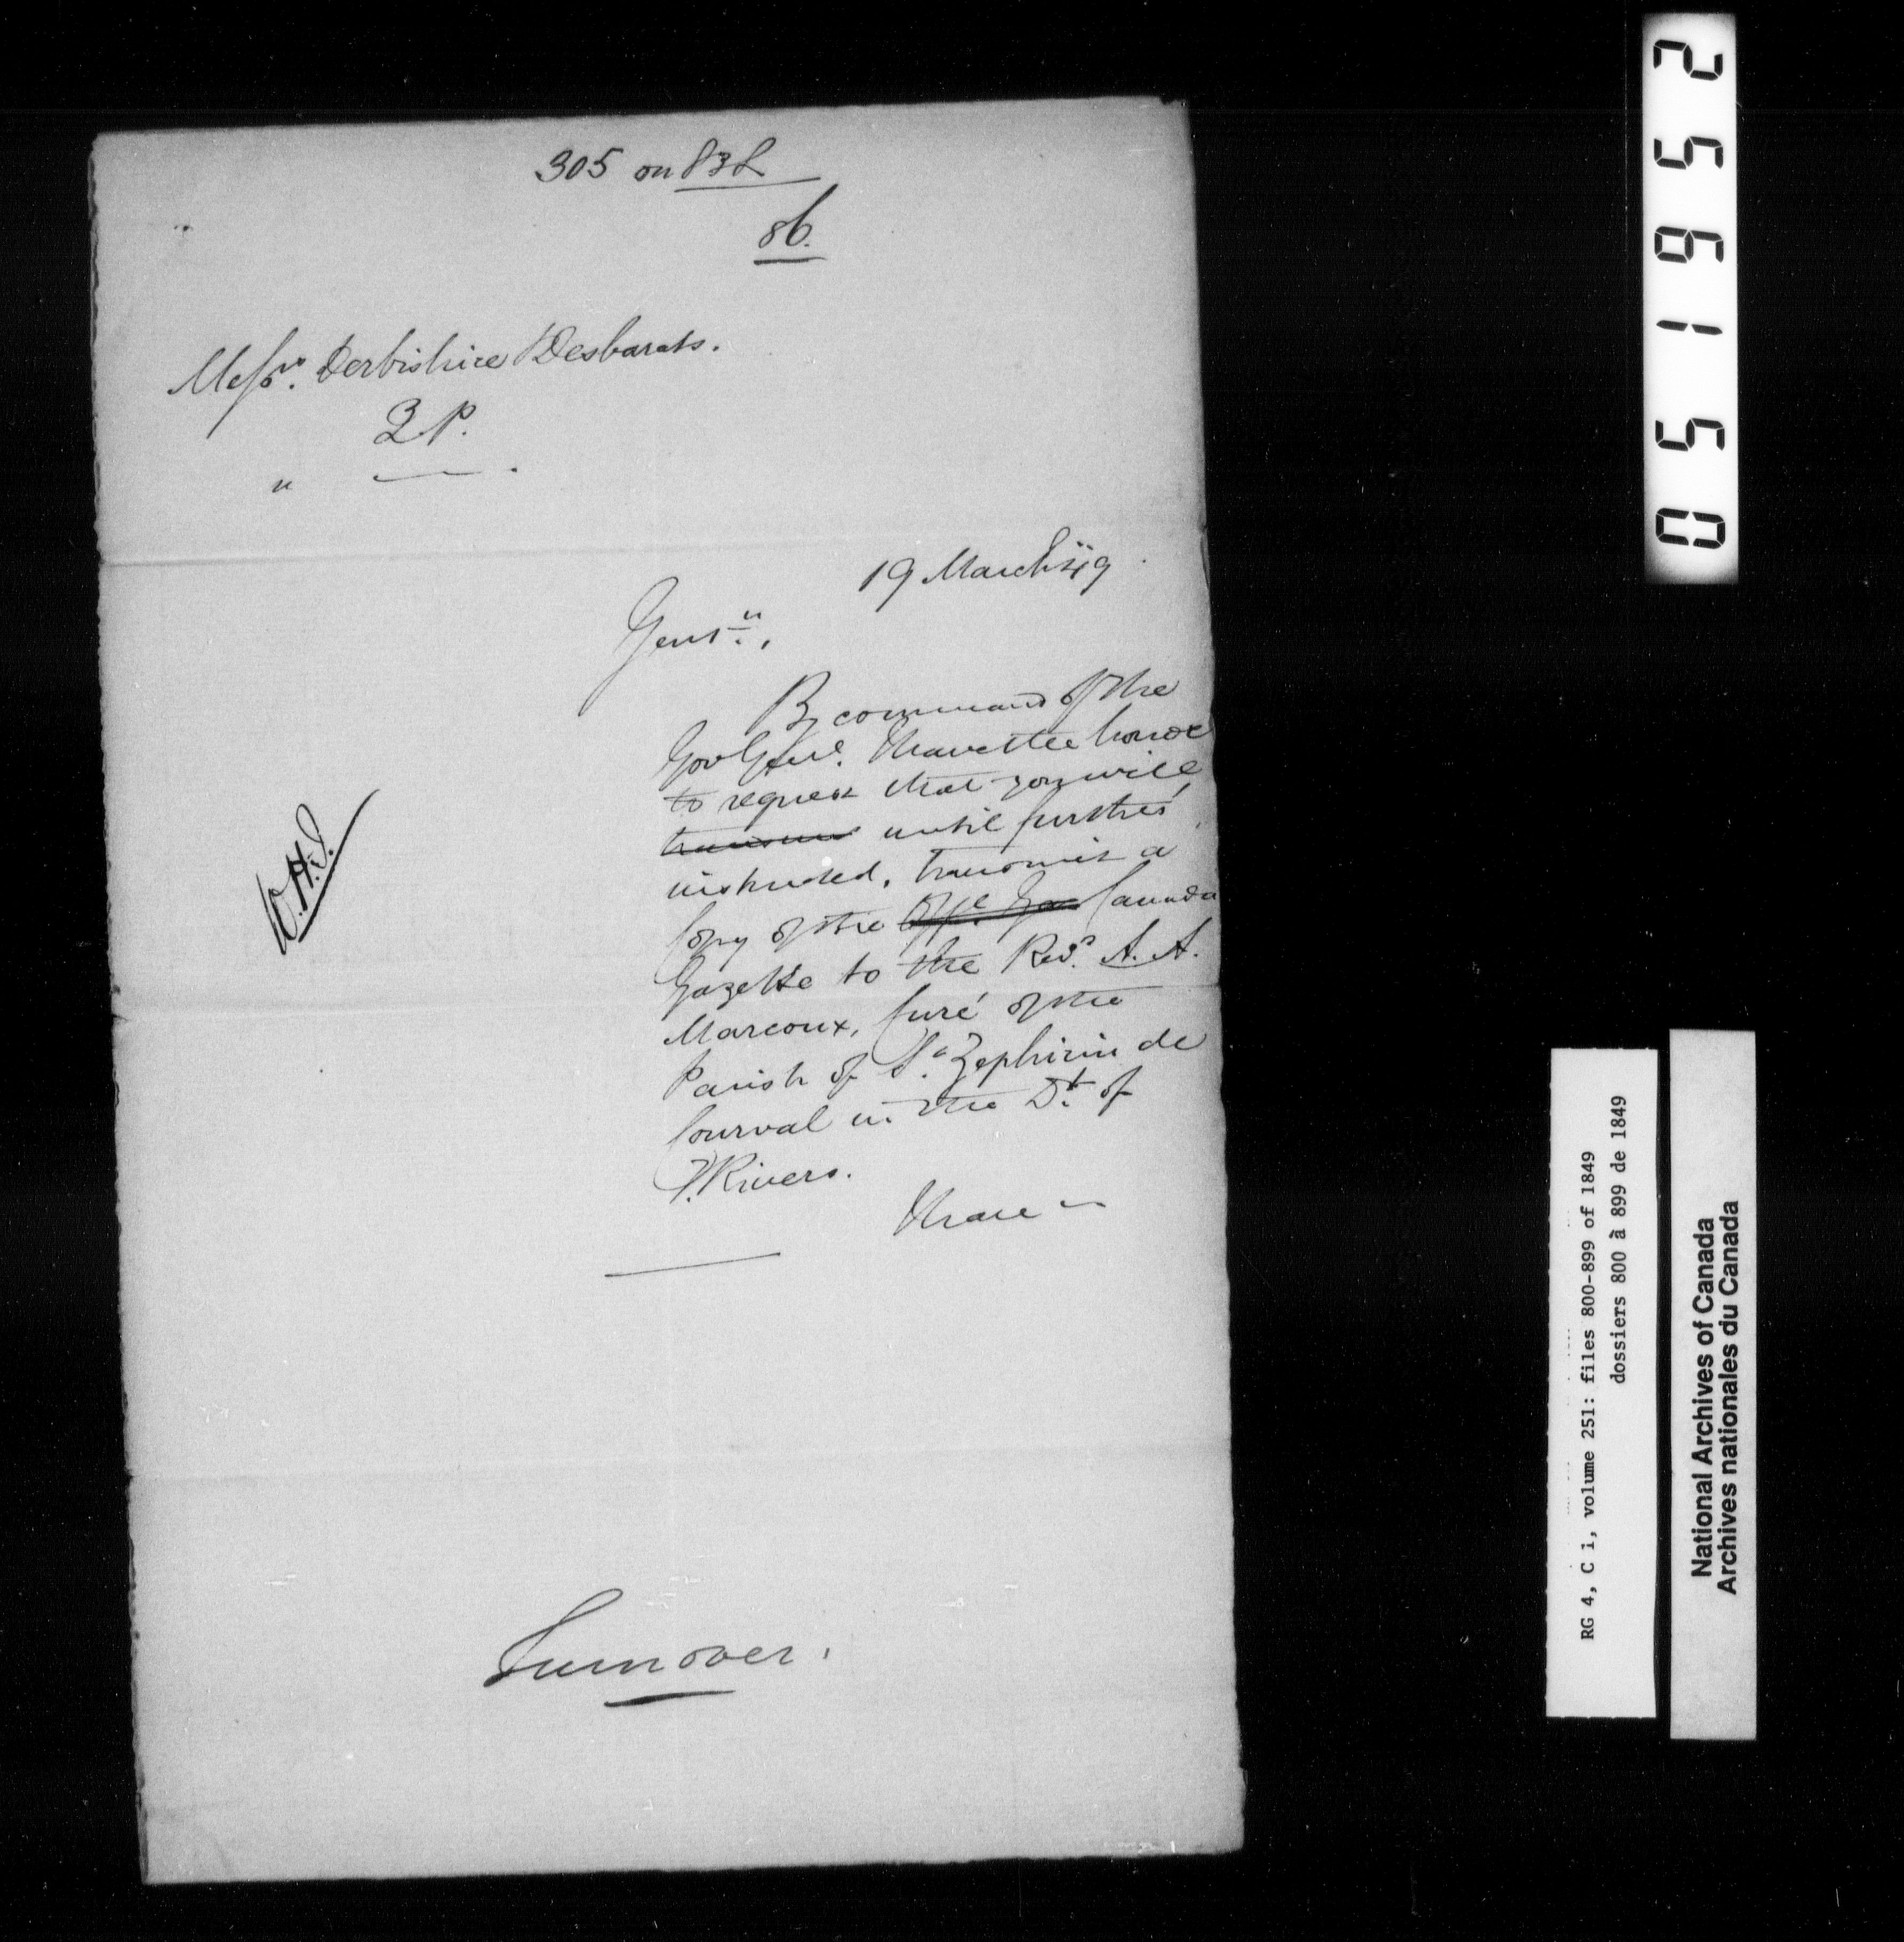 305 on 838
86.
Messrs. Derbishire Desbarats.
Q.P.
"
19 March 49
Gentn.,
By command of the
Gov Genl. I have the honor
to request that you will
transmit until further
instructed, transmit a
Copy of the Offl. Gaz Canada
Gazette to the Revd. A. A.
Marcoux, Curé of the
Parish of St. Zephirin de
Courval in the Dt. of
T. Rivers.
I have
W.H.J.
Turn over.
051952
RG 4, C 1, volume 251: files 800-899 of 1849
dossiers 800 à 899 de 1849
National Archives of Canada
Archives nationales du Canada